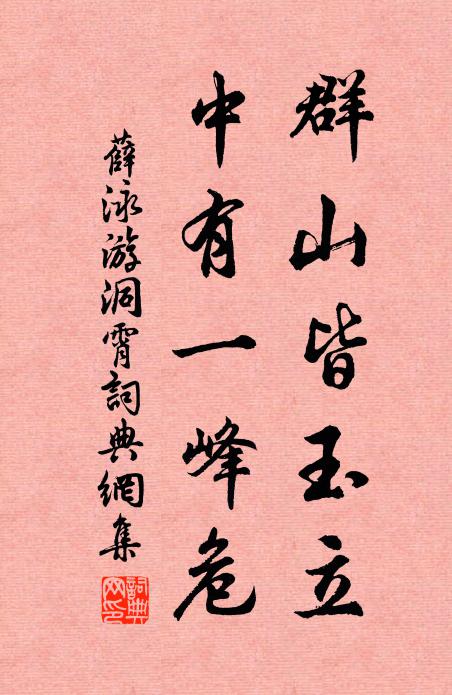 群山皆玉立
中有一峰危
薛泳游洞霄詞典網集